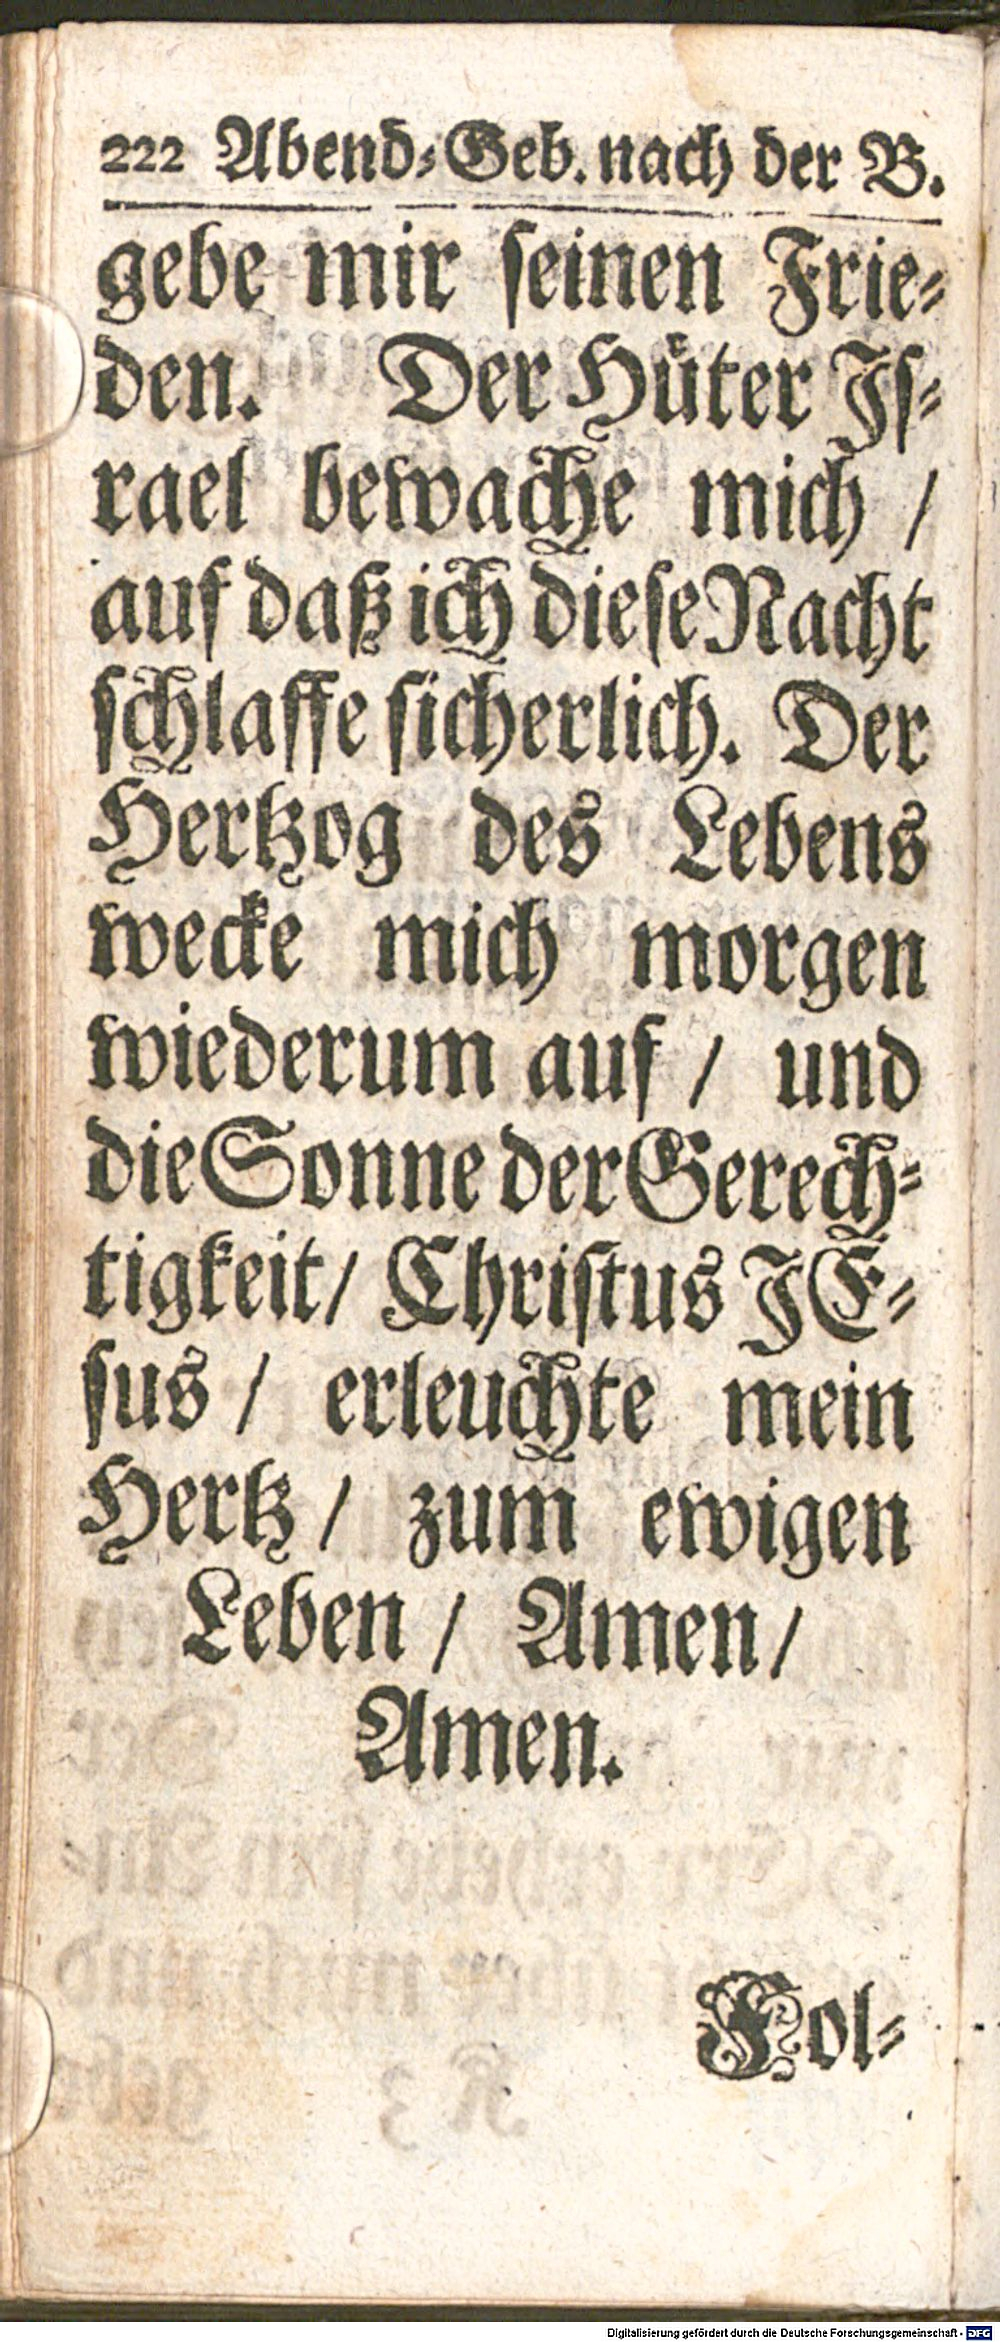 222 Abend⸗Geb. nach der B.
gebe mir ſeinen Frie⸗
den. Der Huͤter Iſ⸗
rael bewache mich /
auf daß ich dieſe Nacht
ſchlaffe ſicherlich. Der
Hertzog des Lebens
wecke mich morgen
wiederum auf / und
die Sonne der Gerech⸗
tigkeit / Chriſtus JE⸗
ſus / erleuchte mein
Hertz / zum ewigen
Leben / Amen /
Amen.
Fol⸗
Digitalisierung gefördert durch die Deutsche Forschungsgemeinschaft - DFG